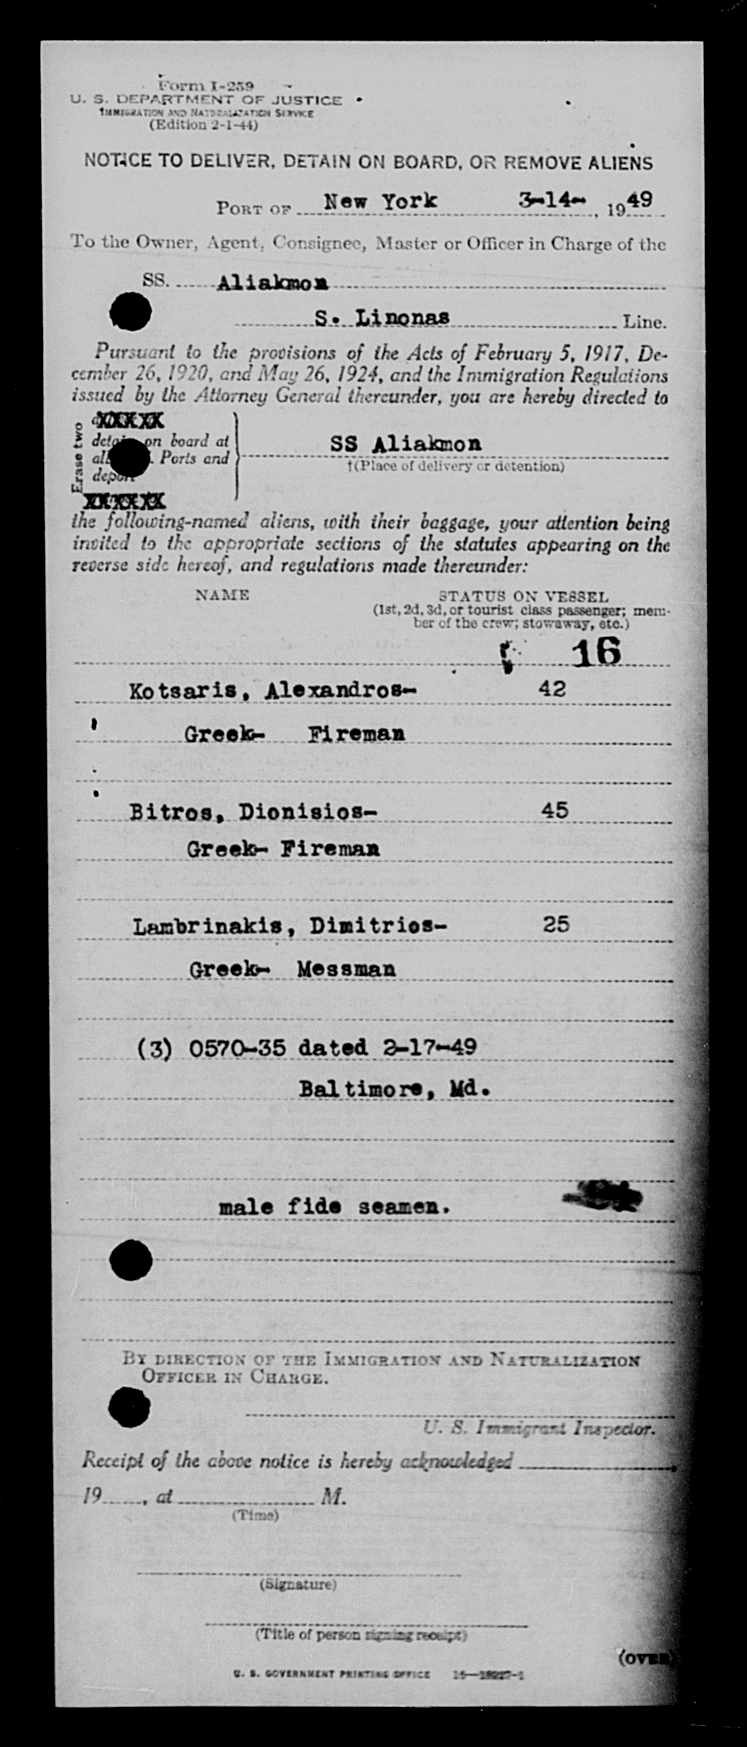 Form I-259
U. S. DEPARTMENT OF JUSTICE
IMMIGRATION AND NATURALIZATION SERVICE
(Edition 2-1-44)
NOTICE TO DELIVER, DETAIN ON BOARD, OR REMOVE ALIENS
PORT OF New York 3-14-, 1949
To the Owner, Agent, Consignee, Master or Officer in Charge of the
SS. Aliakmon
S. Linonas Line.
Pursuant to the provisions of the Acts of February 5, 1917, De-
cember 26, 1920, and May 26, 1924, and the Immigration Regulations
issued by the Attorney General thereunder, you are hereby directed to
Erase two
XXXXX
detain on board at
all Ports and
deport
XXXXXX
SS Aliakmon
†(Place of delivery or detention)
the following-named aliens, with their baggage, your attention being
invited to the appropriate sections of the statutes appearing on the
reverse side hereof, and regulations made thereunder:
NAME STATUS ON VESSEL
(1st, 2d, 3d, or tourist class passenger; mem-
ber of the crew; stowaway, etc.)
16
Kotsaris, Alexandros- 42
Greek- Fireman
Bitros, Dionisios- 45
Greek- Fireman
Lambrinakis, Dimitrios- 25
Greek- Messman
(3) 0570-35 dated 2-17-49
Baltimore, Md.
male fide seamen.
BY DIRECTION OF THE IMMIGRATION AND NATURALIZATION
OFFICER IN CHARGE.
U. S. Immigrant Inspector.
Receipt of the above notice is hereby acknowledged
19, at M.
(Time)
(Signature)
(Title of person signing receipt)
(OVER)
U. S. GOVERNMENT PRINTING OFFICE